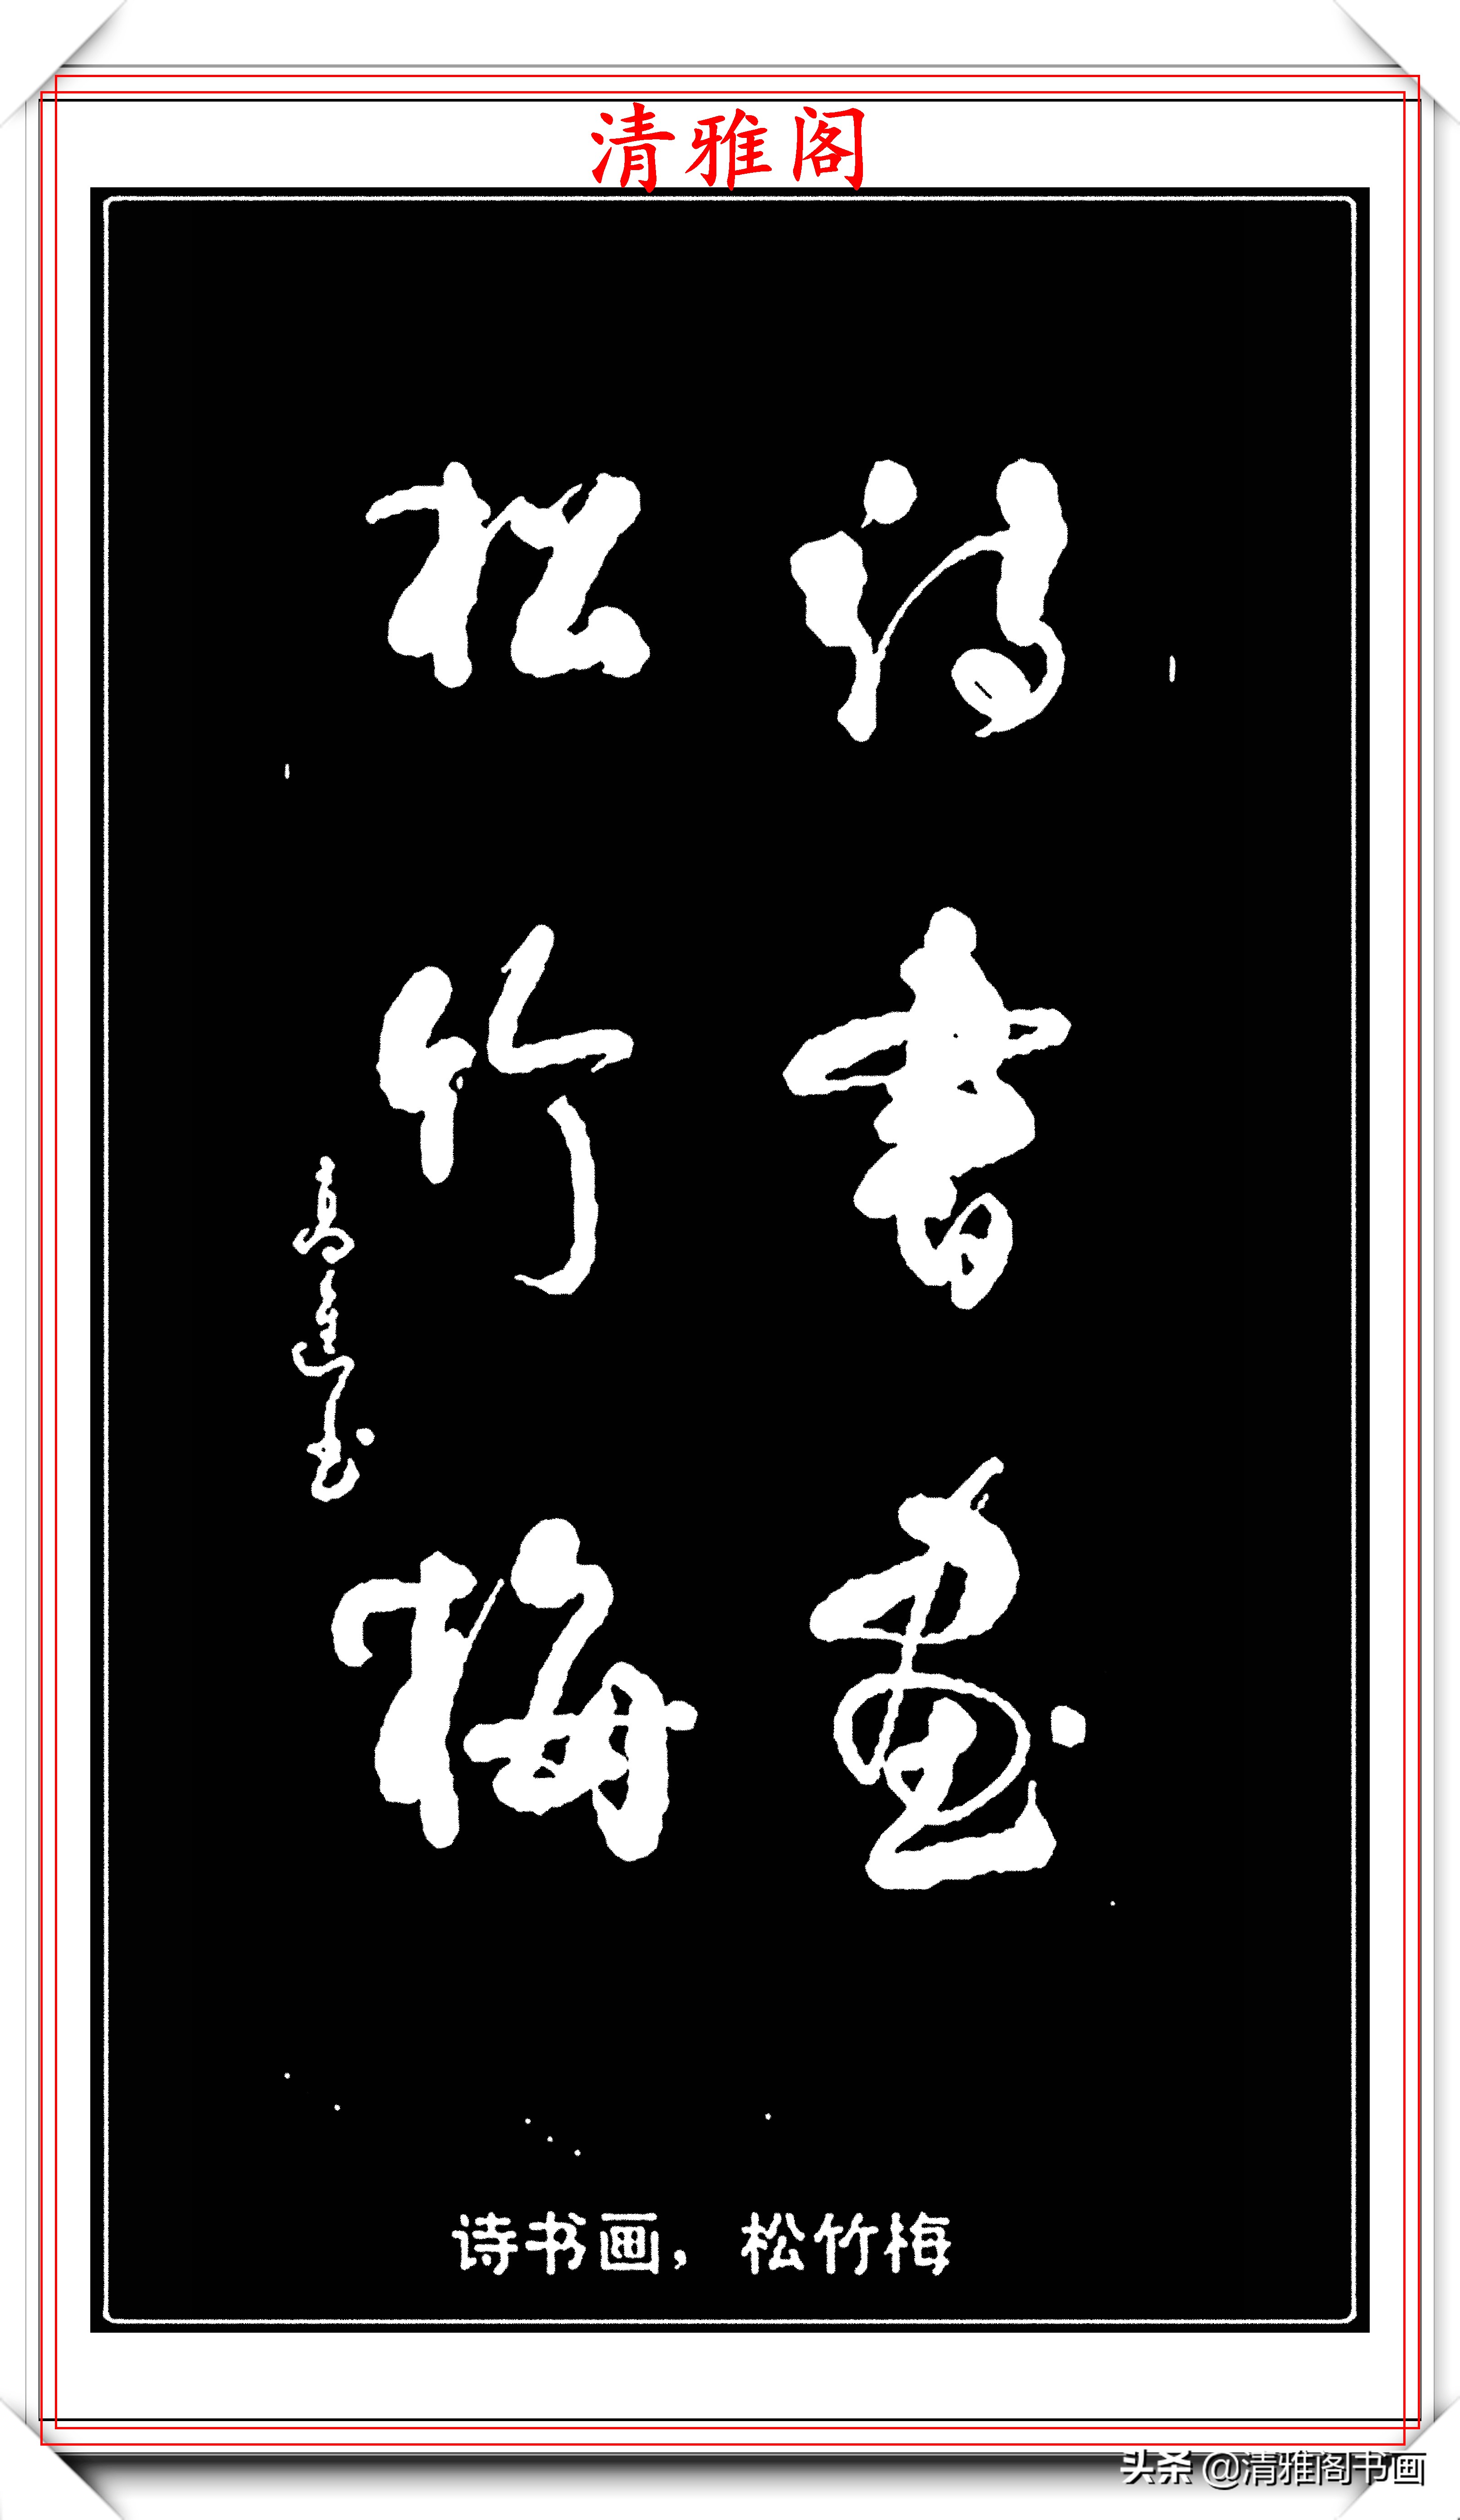 清雅阁
诗书画
松竹梅
诗书画，松竹梅
头条 @清雅阁书画